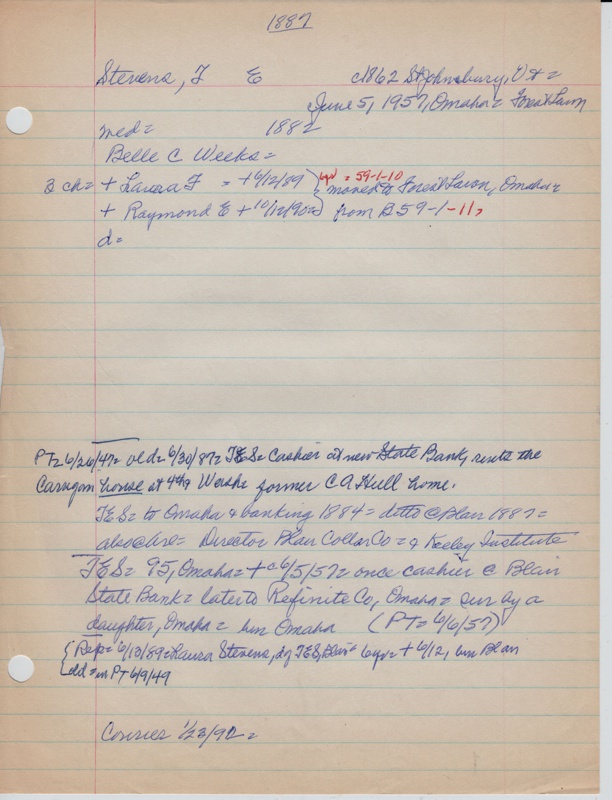 1887
Stevens, F E c1862 St Johnsbury, Vt =
June 5, 1957, Omaha = Forest Lawn
med = 1882
Belle C Weeks =
2 ch = + Laura F = +6/12/89 } 6yr = 59-1-10 moved to Forest Lawn, Omaha =
+ Raymond E + 10/12/90 = from B 59-1-11,
d =
PT = 6/26/47 = old = 6/30/87 = FES = Cashier at new State Bank, rents the
Carrigan house at 4th & Wash = former C A Hull home.
FES = to Omaha & banking 1884 = ditto @ Blair 1887 =
also @ = Director Blair Collar Co = & Keeley Institute
FES = 95, Omaha = + c 6/5/57 = once cashier @ Blair
State Bank = later to Refinite Co, Omaha = sur by a
daughter, Omaha = bur Omaha (PT = 6/6/57)
{ Rep = 6/13/89 = Laura Stevens, dg FES, Blair = 6yr = + 6/12, bur Blair
dd = in PT 6/9/49
Courier 1/23/92 =